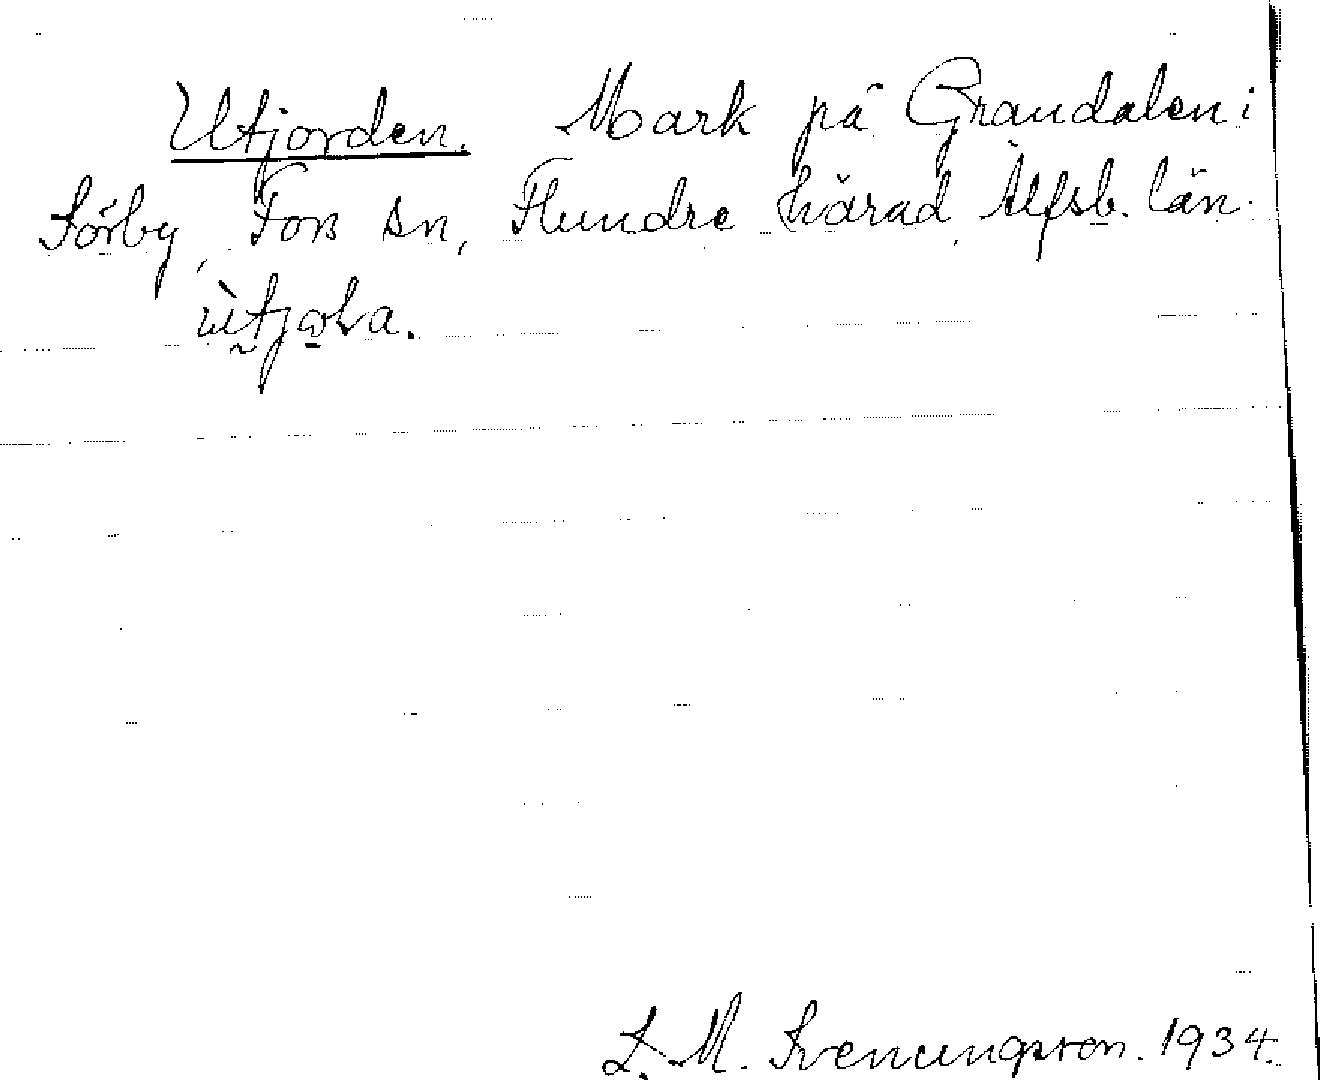 Utjorden. Mark på Grandalen i
Sörby, Fors sn, Flundre härad, Älfsb. län.
ùtjoɫa.
L. M. Svenungsson. 1934.